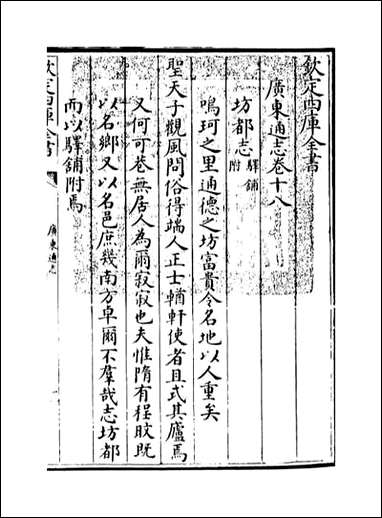 欽定四庫全書
廣東通志卷十八
坊都志驛舖附
鳴珂之里通德之坊富貴令名地以人重矣
聖天子觀風問俗得端人正士輶軒使者且式其廬焉
又何可巷無居人為爾寂寂也夫惟隋有程旼既
以名鄉又以名邑庶幾南方卓爾不羣哉志坊都
而以驛舖附焉
欽定四庫全書
廣東通志